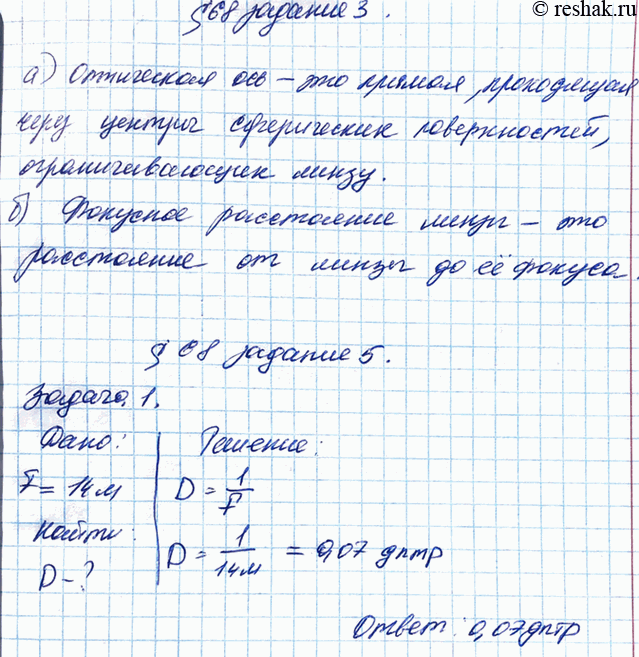 © reshak.ru
§68 задание 3.
а) Оптическая ось – это прямая, проходящая
через центры сферических поверхностей,
ограничивающих линзу.
б) Фокусное расстояние линзы – это
расстояние от линзы до её фокуса.
§ 68 задание 5.
Задача 1.
Дано: Решение:
F = 14м D = 1/F
Найти: D = 1/14м = 0,07 дптр
D – ?
Ответ: 0,07дптр